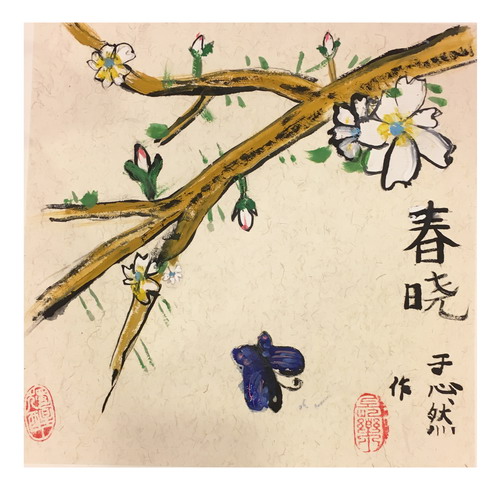 春晓
于心然
作